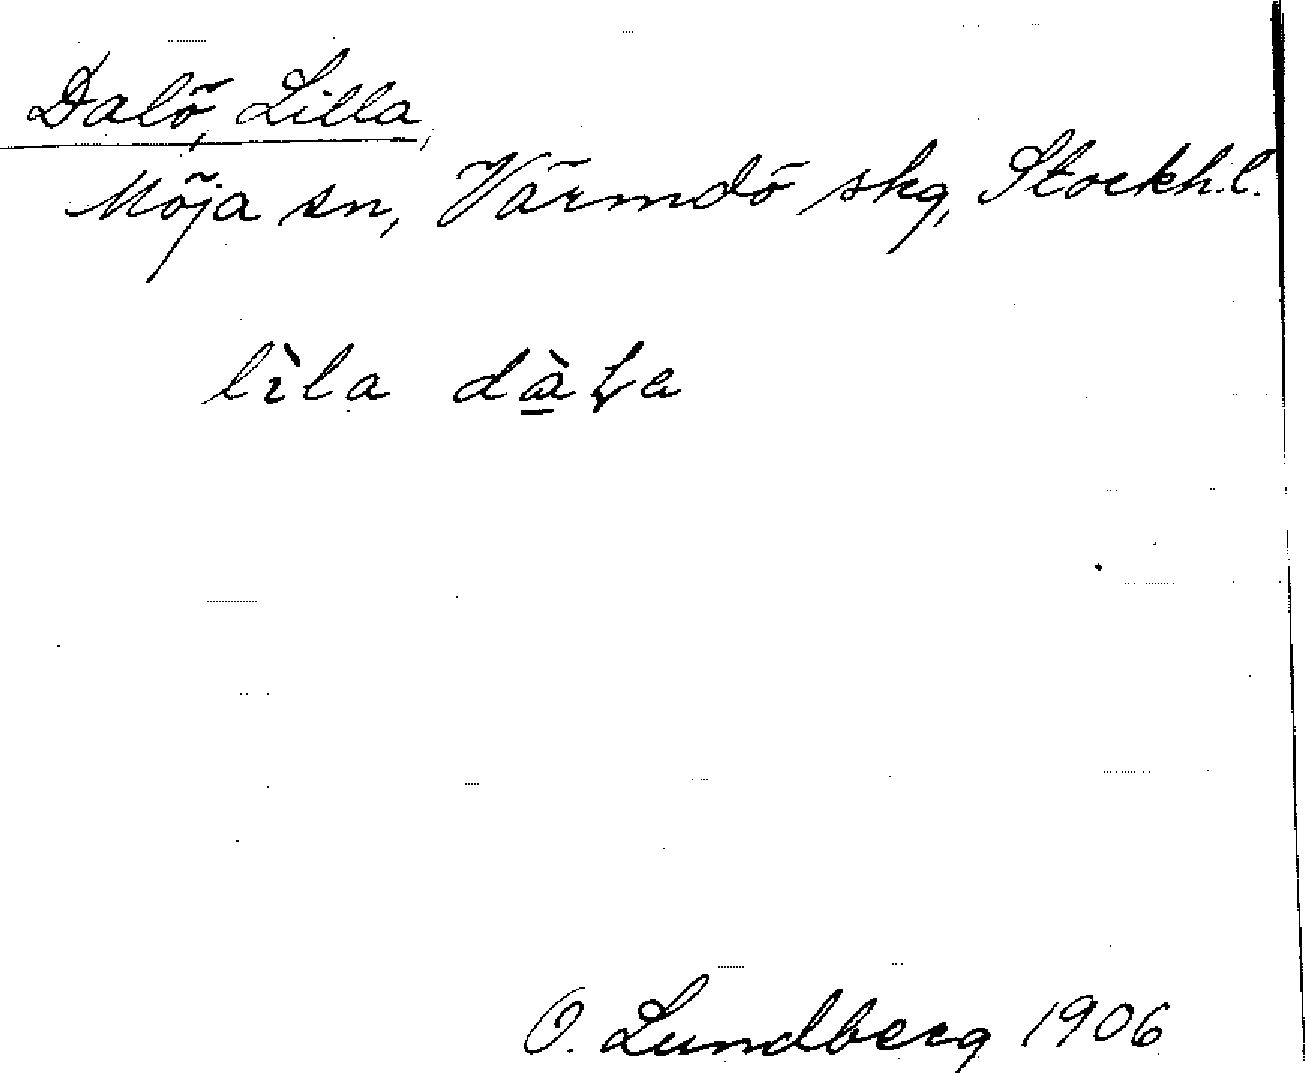 Dalö, Lilla,
Möja sn, Värmdö skg, Stockh.l.
lìla dà̲Ła
O. Lundberg 1906